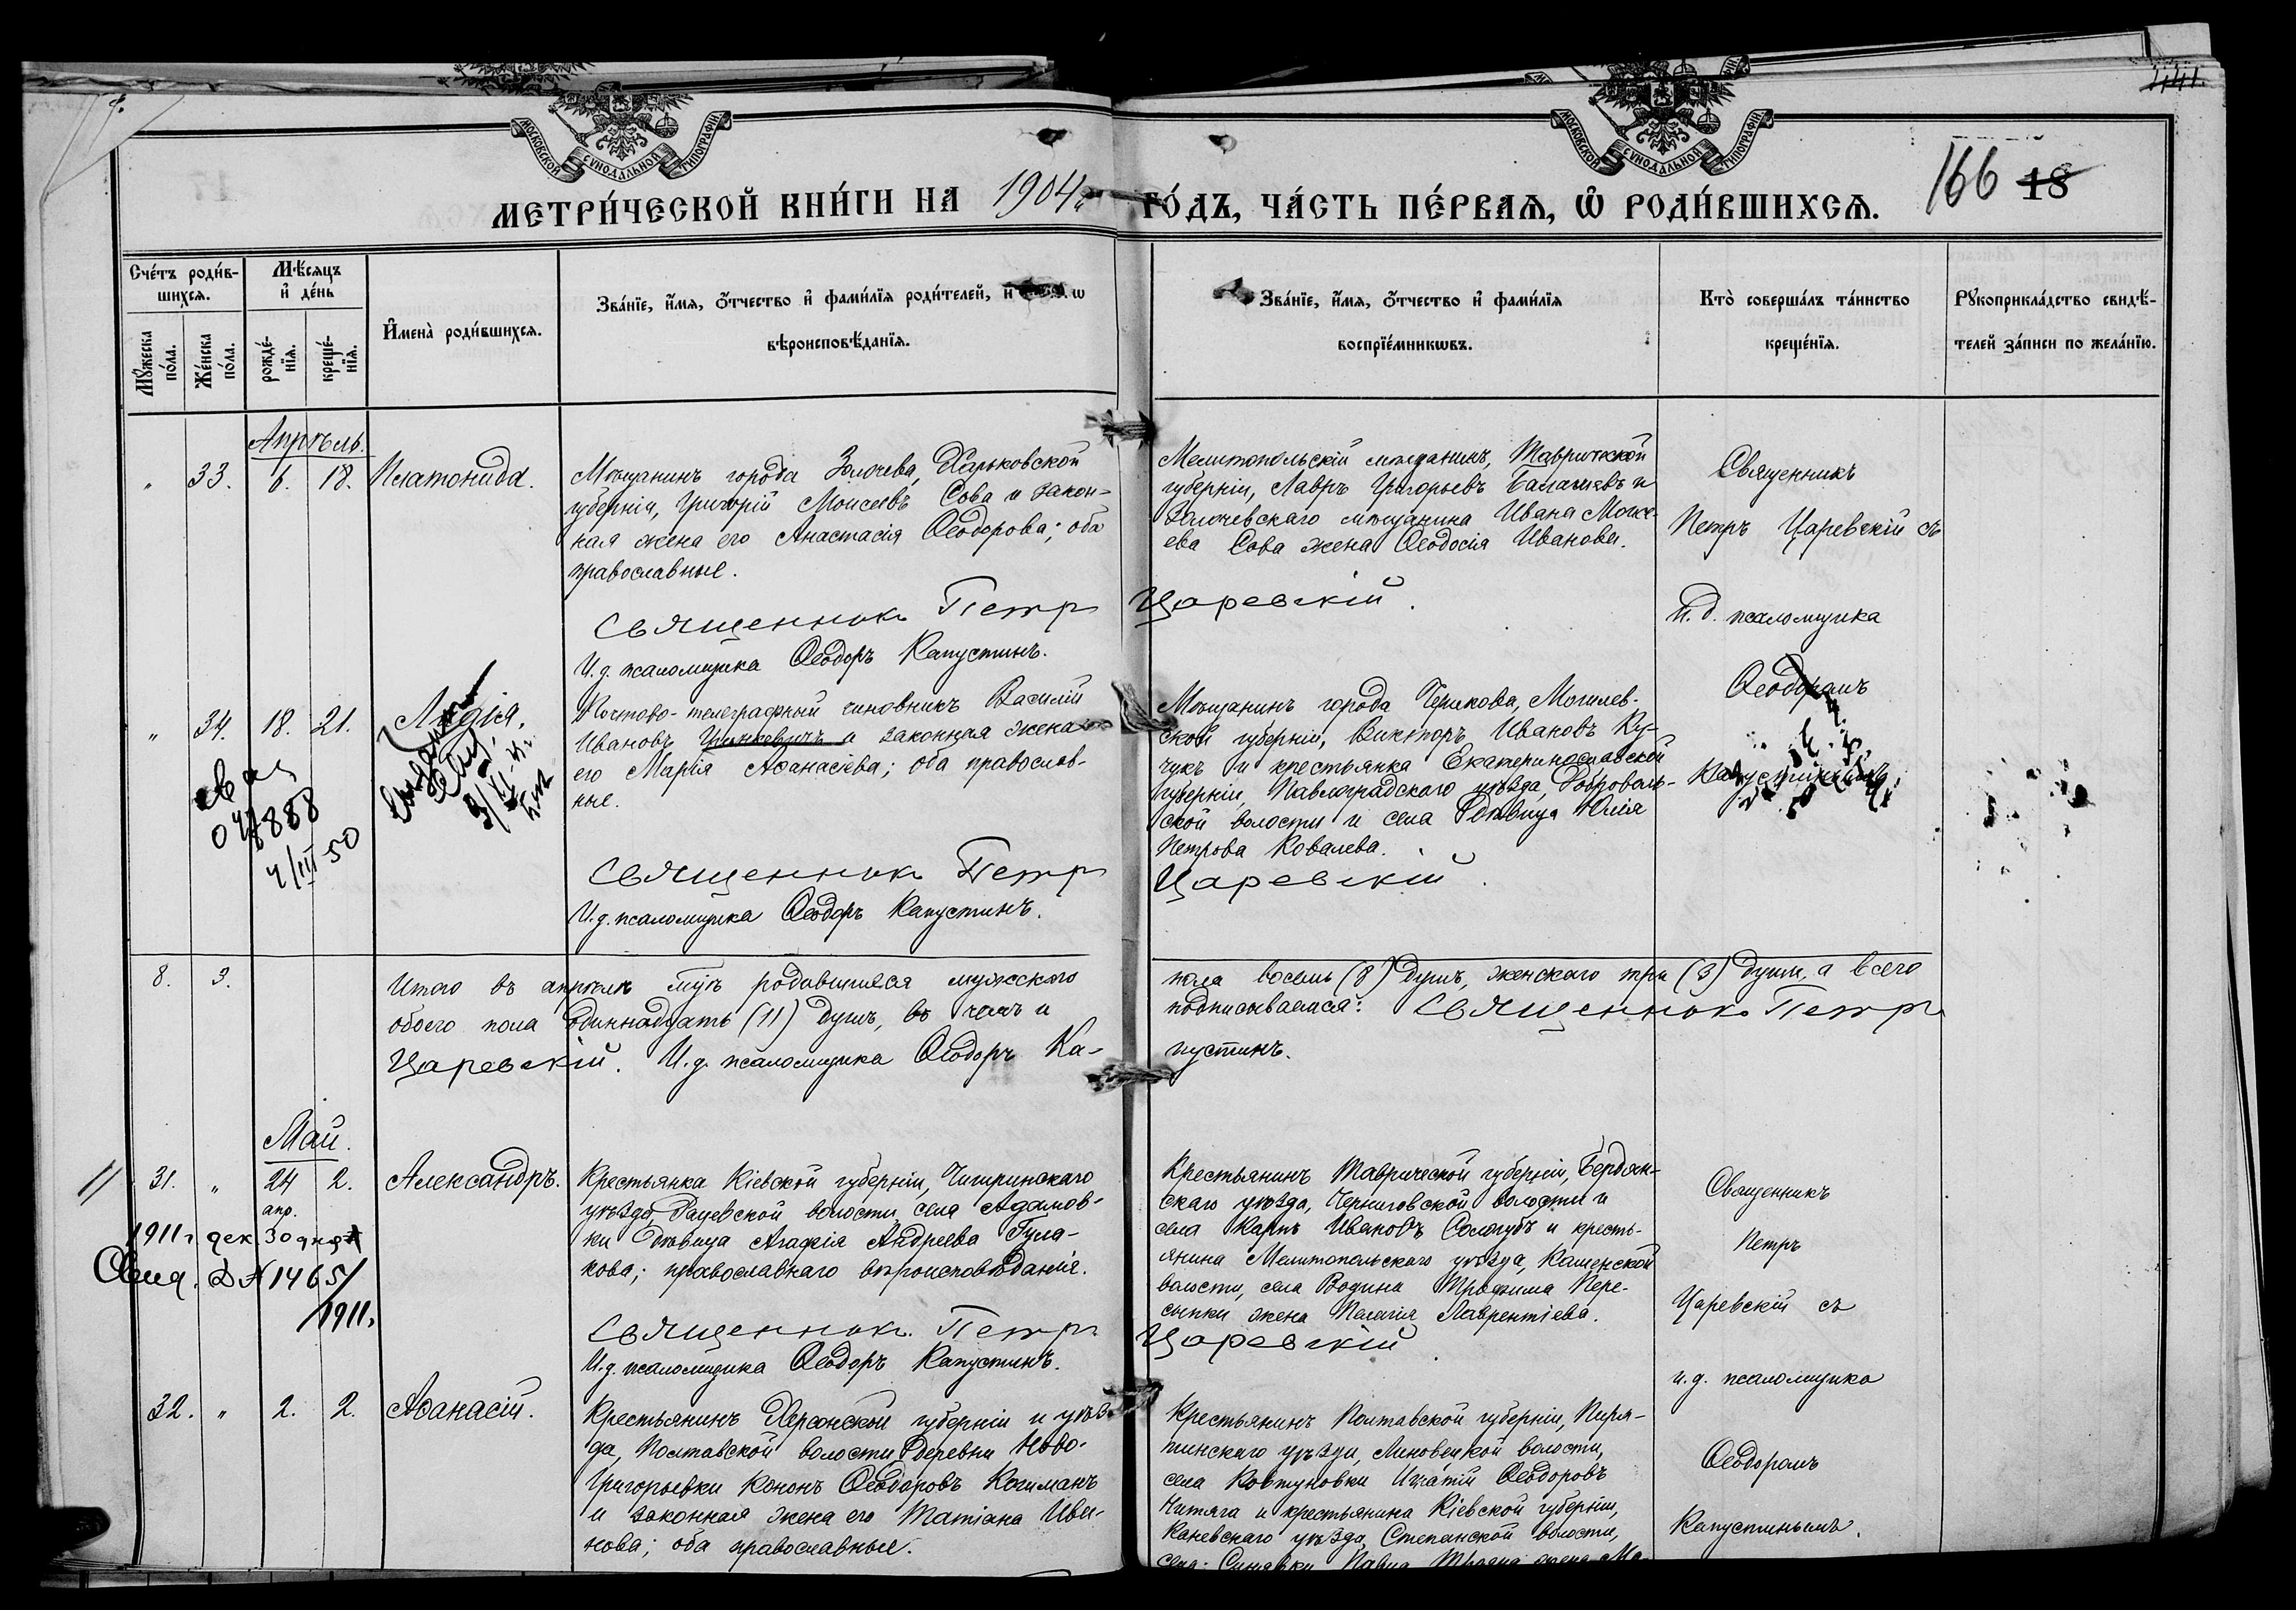 МОСКОВСКОЙ СУНОДАЛЬНОЙ ТИПОГРАФІИ
МОСКОВСКОЙ СУНОДАЛЬНОЙ ТИПОГРАФІИ
МЕТРИ́ЧЕСКОЙ КНИ́ГИ НА 1904 ГО́ДЪ, ЧА́СТЬ ПЕ́РВАѦ, Ѡ РОДИ́ВШИХСѦ.
166 18
Сче́тъ роди́в-
шихсѧ.
Мꙋ́жеска по́ла.
Же́нска по́ла.
Мѣ́сѧцъ
и҆ де́нь
рожде́-
нїѧ.
креще́-
нїѧ.
И҆мена̀ роди́вшихсѧ.
Зва́нїе, и҆́мѧ, ѻ҆́тчество и҆ фами́лїѧ роди́телей, и҆
вѣроисповѣ́данїѧ.
Зва́нїе, и҆́мѧ, ѻ҆́тчество и҆ фами́лїѧ
воспрїе́мникѡвъ.
Кто̀ соверша́лъ та́инство
креще́нїѧ.
Рꙋкоприкла́дство свидѣ́-
телей за́писи по жела́нїю.
Апрѣль.
" 33. 6. 18. Платонида.
Мѣщанинъ города Золочева, Харьковской
губерніи, Григорій Моисеевъ Сова и закон-
ная жена его Анастасія Ѳеодорова; оба
православные.
Священник Петр Царевскій.
И.д. псаломщика Ѳеодоръ Капустинъ.
Мелитопольскій мѣщанинъ, Таврической
губерніи, Лавръ Григорьевъ и
Золочевскаго мѣщанина Ивана Моисе-
ева Сова жена Ѳеодосія Иванова.
Священникъ
Петръ Царевскій съ
и.д. псаломщика
Ѳеодоромъ
Капустинымъ
" 34. 18. 21. Лидія.
Почтово-телеграфный чиновникъ Василій
Ивановъ Гринкевичъ и законная жена
его Марія Аѳанасіева; оба православ-
ные.
Священник Петр Царевскій.
И.д. псаломщика Ѳеодоръ Капустинъ.
Мѣщанинъ города Черикова, Могилев-
ской губерніи, Викторъ Ивановъ Ку-
чукъ и крестьянка Екатеринославской
губерніи, Павлоградскаго уѣзда,
ской волости и села дѣвица Юлія
Петрова Ковалева.
4/III 50
8. 3.
Итого въ апрѣлѣ м-цѣ родившихся мужскаго пола восемь (8) душъ, женскаго три (3) души, а всего
обоего пола одиннадцать (11) душъ, въ чемъ и подписываемся: Священник Петр
Царевскій. И.д. псаломщика Ѳеодоръ Ка-пустинъ.
Май.
31. " 24 апр. 2. Александръ.
1911 г дек 30 дня
Свид. № 1465/1911.
Крестьянка Кіевской губерніи, Чигиринскаго
уѣзда, Рацевской волости, села Адамов-
ки дѣвица Агафія Андреева Гула-
кова; православнаго вѣроисповѣданія.
Священник Петр Царевскій
И.д. псаломщика Ѳеодоръ Капустинъ.
Крестьянинъ Таврической губерніи, Бердян-
скаго уѣзда, Черниговской волости и
села Карпъ Ивановъ Сологубъ и кресть-
янина Мелитопольскаго уѣзда, Каменской
волости, села Водяна Трофима Пере-
сыпки жена Пелагія Лаврентіева.
Священникъ
Петръ
Царевскій съ
и.д. псаломщика
Ѳеодоромъ
Капустинымъ.
32. " 2. 2. Аѳанасій.
Крестьянинъ Херсонской губерніи и уѣз-
да, Полтавской волости, деревни Ново-
Григорьевки Кононъ Ѳеодоровъ Кочиманъ
и законная жена его Татіана Ива-
нова; оба православные.
Крестьянинъ Полтавской губерніи, Пиря-
тинскаго уѣзда, волости,
села Ковтуновки Игнатій Ѳеодоровъ
Читяга и крестьянина Кіевской губерніи,
Каневскаго уѣзда, Степанской волости,
села: Синявки Павла